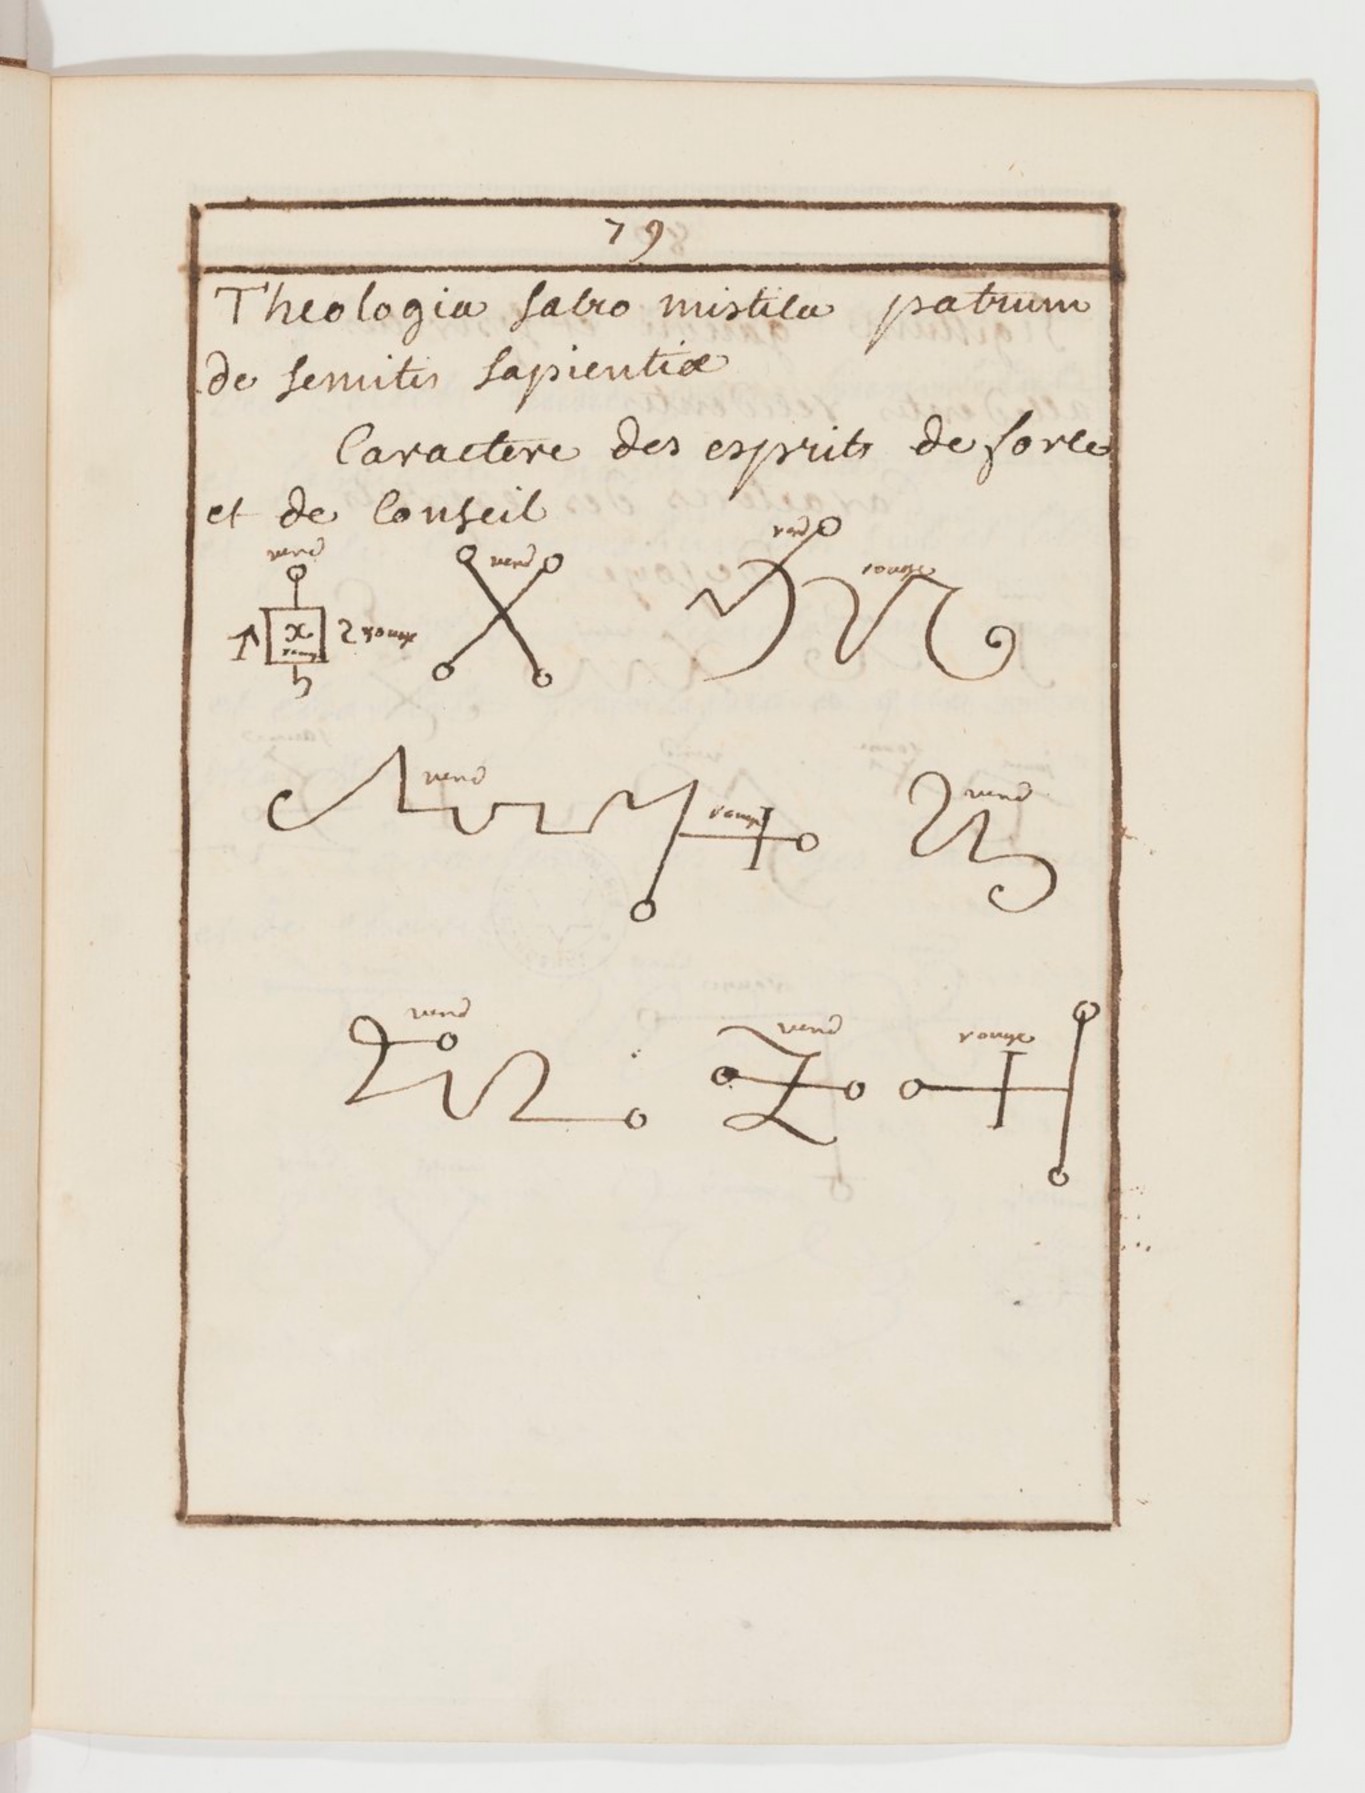 79
Theologia sabro mistica patrum
de semitis sapientiæ
Caractere des esprits de force
et de Conseil
verd verd verd rouge
x 2 rouge
rouge
verd rouge verd
verd verd rouge